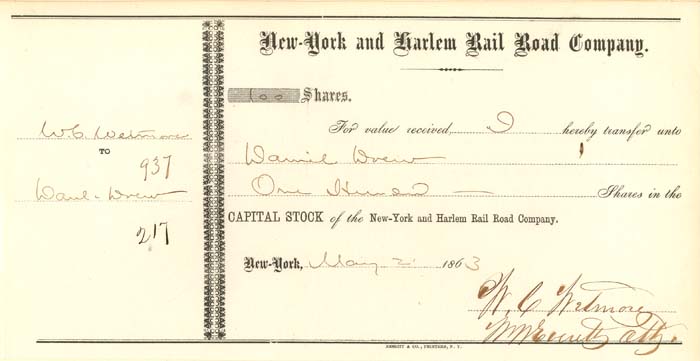 New-York and Harlem Rail Road Company.
100 Shares.
For value received, I hereby transfer unto
Daniel Drew
One Hundred Shares in the
CAPITAL STOCK of the New-York and Harlem Rail Road Company.
New-York, May 2 1863
W. C. Wetmore
Atty.
W C Wetmore
TO
937
Danl. Drew
217
NESBITT & CO., PRINTERS, N. Y.